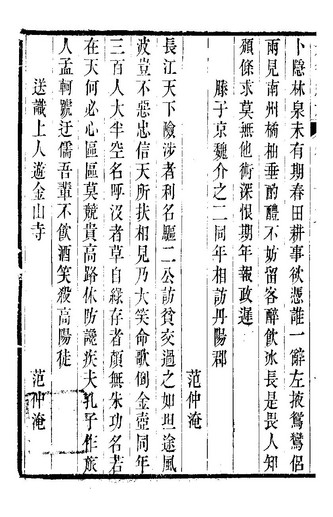 卜隱林泉未有期春田耕事欲憑誰一辭左掖鴛鴦侶
兩見南州橘柚垂酌醴不妨留客醉飲冰長是畏人知
頹條求莫無他術深恨期年報政遲
滕子京魏介之二同年相訪丹陽郡
范仲淹
長江天下險涉者利名驅二公訪貧交過之如坦途風
波豈不惡忠信天所扶相見乃大笑命歌倒金壺同年
三百人大半空名呼沒者草自綠存者顏無朱功名若
在天何必心區區莫競貴高路休防讒疾夫孔子作旅
人孟軻號迂儒吾輩不飲酒笑殺高陽徒
送識上人遊金山寺
范仲淹